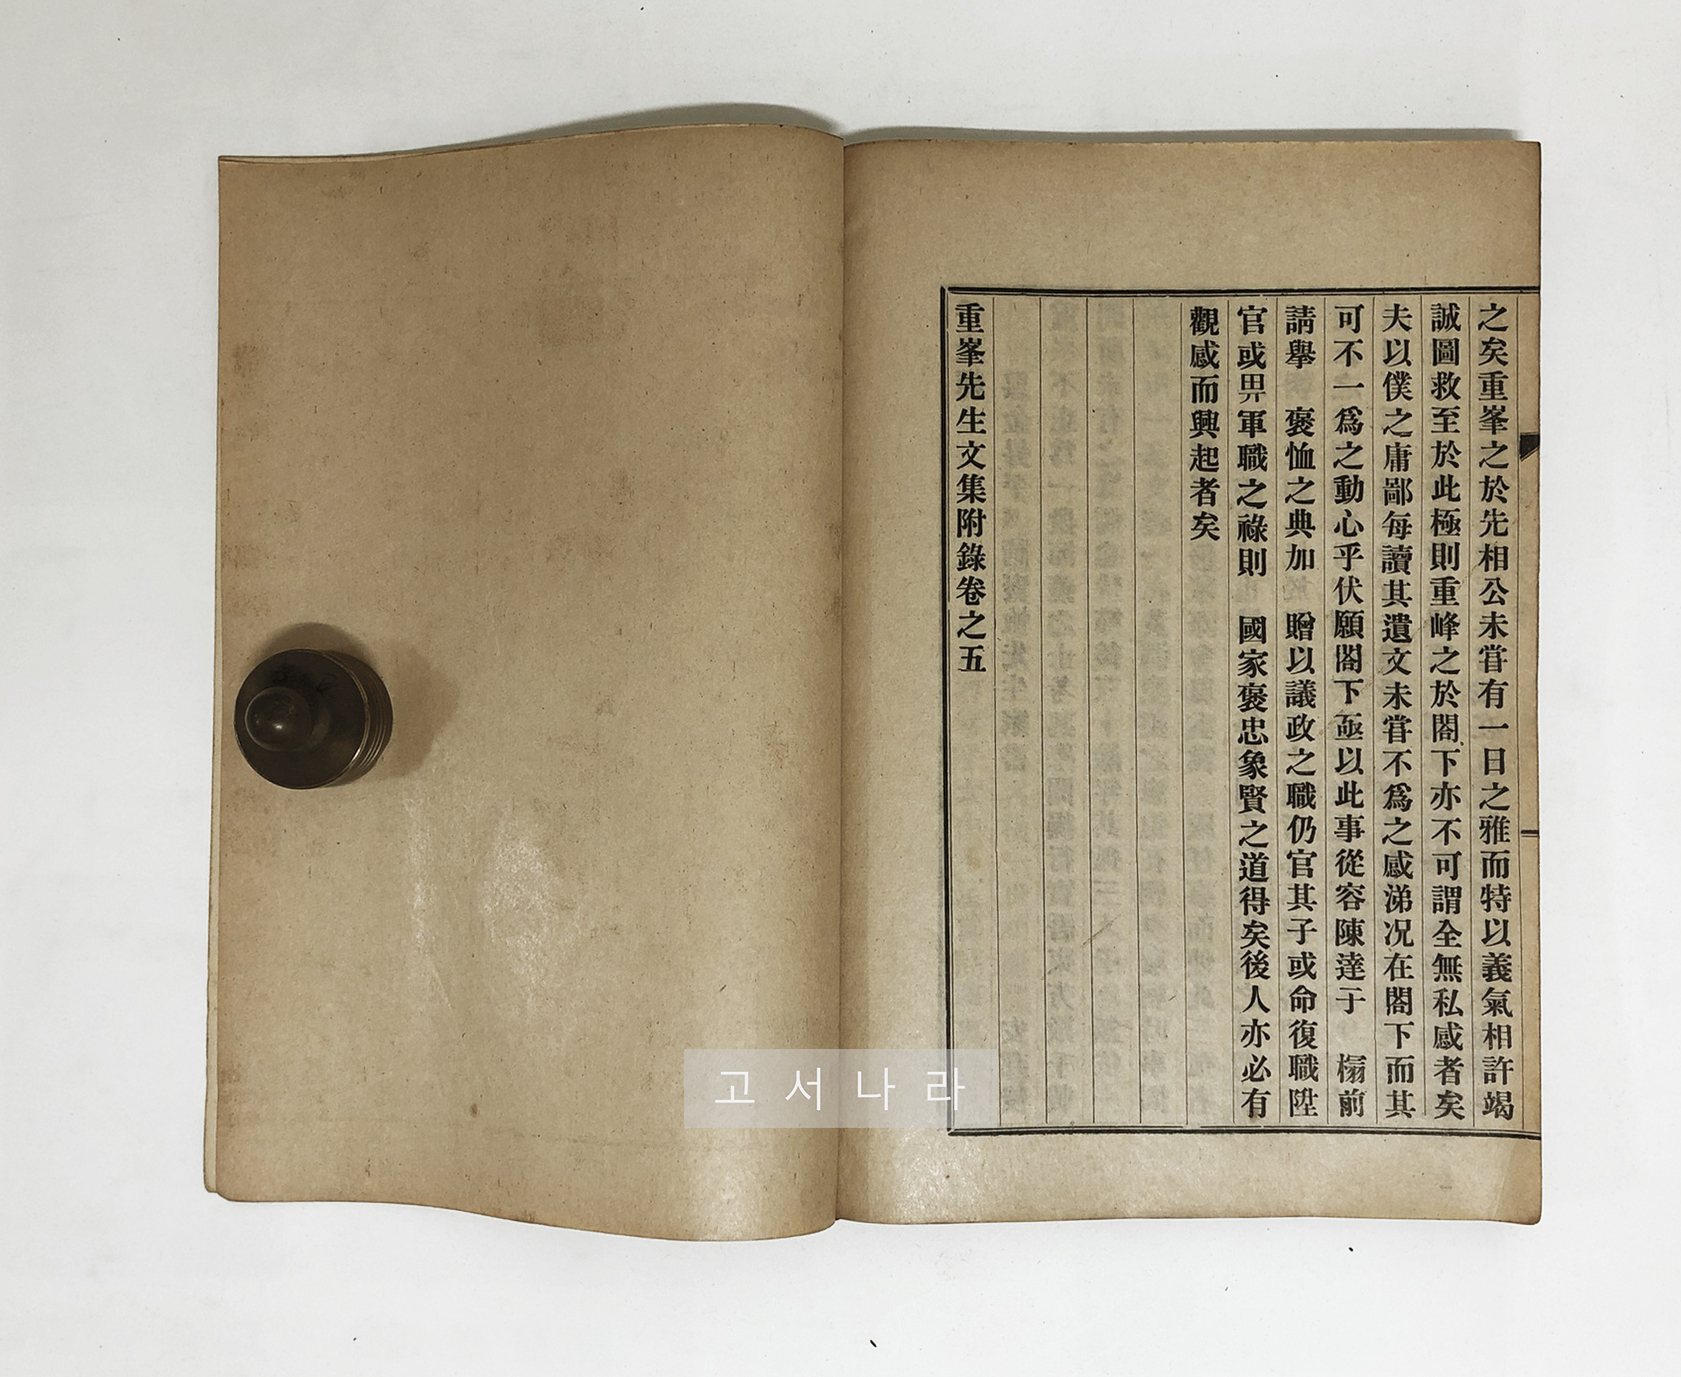 之矣重峯之於先相公未甞有一日之雅而特以義氣相許竭
誠圖救至於此極則重峰之於閤下亦不可謂全無私感者矣
夫以僕之庸鄙每讀其遺文未甞不爲之感涕况在閤下而其
可不一爲之動心乎伏願閤下亟以此事從容陳達于　榻前
請擧　褒恤之典加　贈以議政之職仍官其子或命復職陞
官或畀軍職之祿則　國家褒忠象賢之道得矣後人亦必有
觀感而興起者矣
重峯先生文集附錄卷之五
고서나라